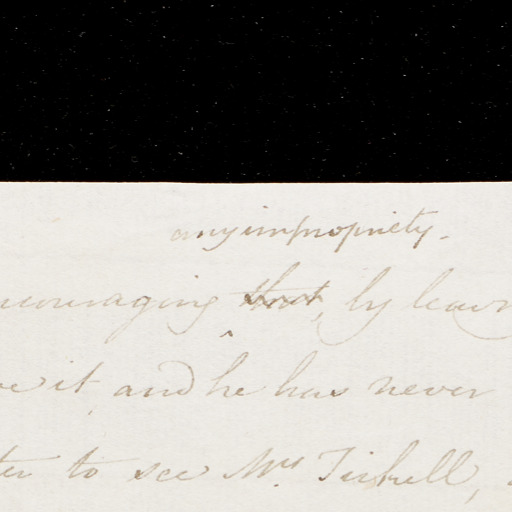 any impropriety.
couraging that, by leav
e it, and he has never
ter to see Mrs Tickell,